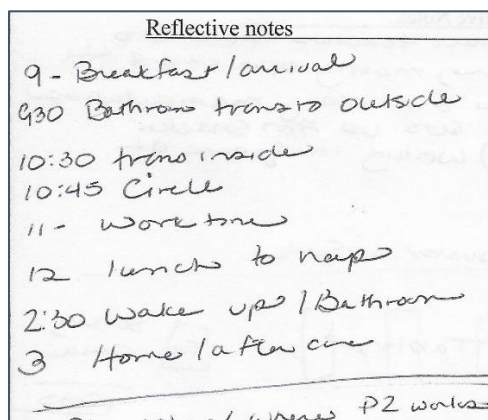 Reflective notes
9 - Breakfast / arrival
930 Bathroom trans to outside
10:30 trans inside
10:45 Circle
11 - work time
12 lunch to nap
2:30 Wake up / Bathroom
3 Home / after care
where P2 works